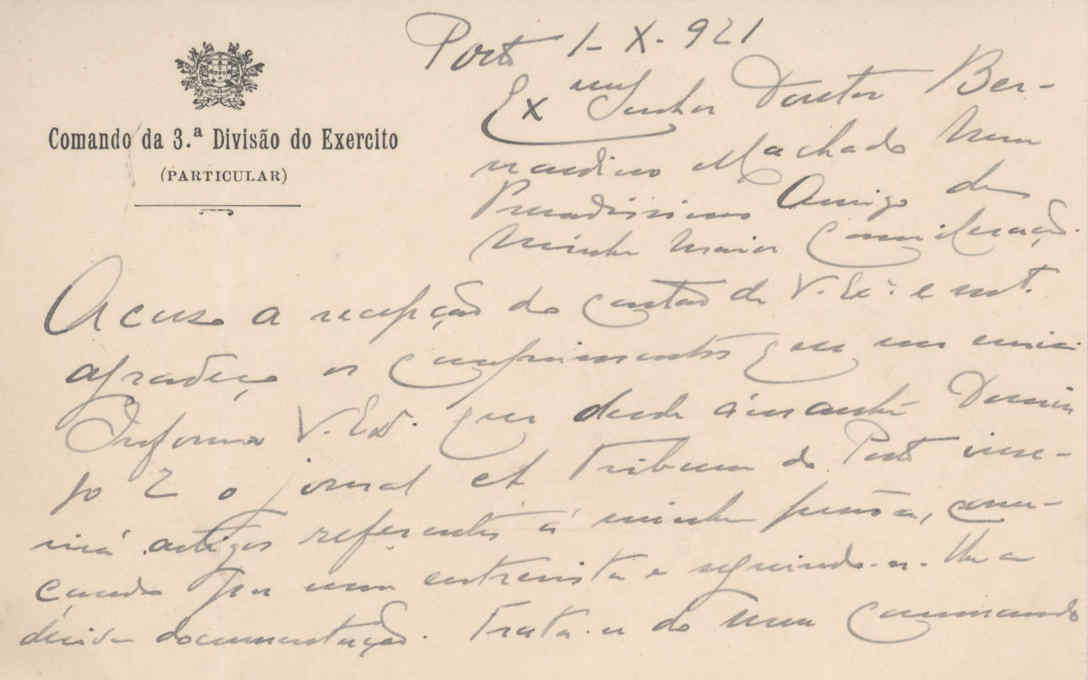 Comando da 3.ª Divisão do Exercito
(PARTICULAR)
Porto 1-X-921
Exmo Senhor Doutor Ber-
nardino Machado Meu
Prezadissimo Amigo de
minha maior Consideração.
Acuso a recepção do cartão de V. Exª. e mt.
agradeço os cumprimentos que me envia
Informo V. Exª. que desde ámanhã Domin
go 2 o jornal A Tribuna do Porto inse-
rirá artigos referentes á minha pessoa, come-
çando por uma entrevista e seguindo-se-lhe a
devida documentação. Trata-se do meu Commando